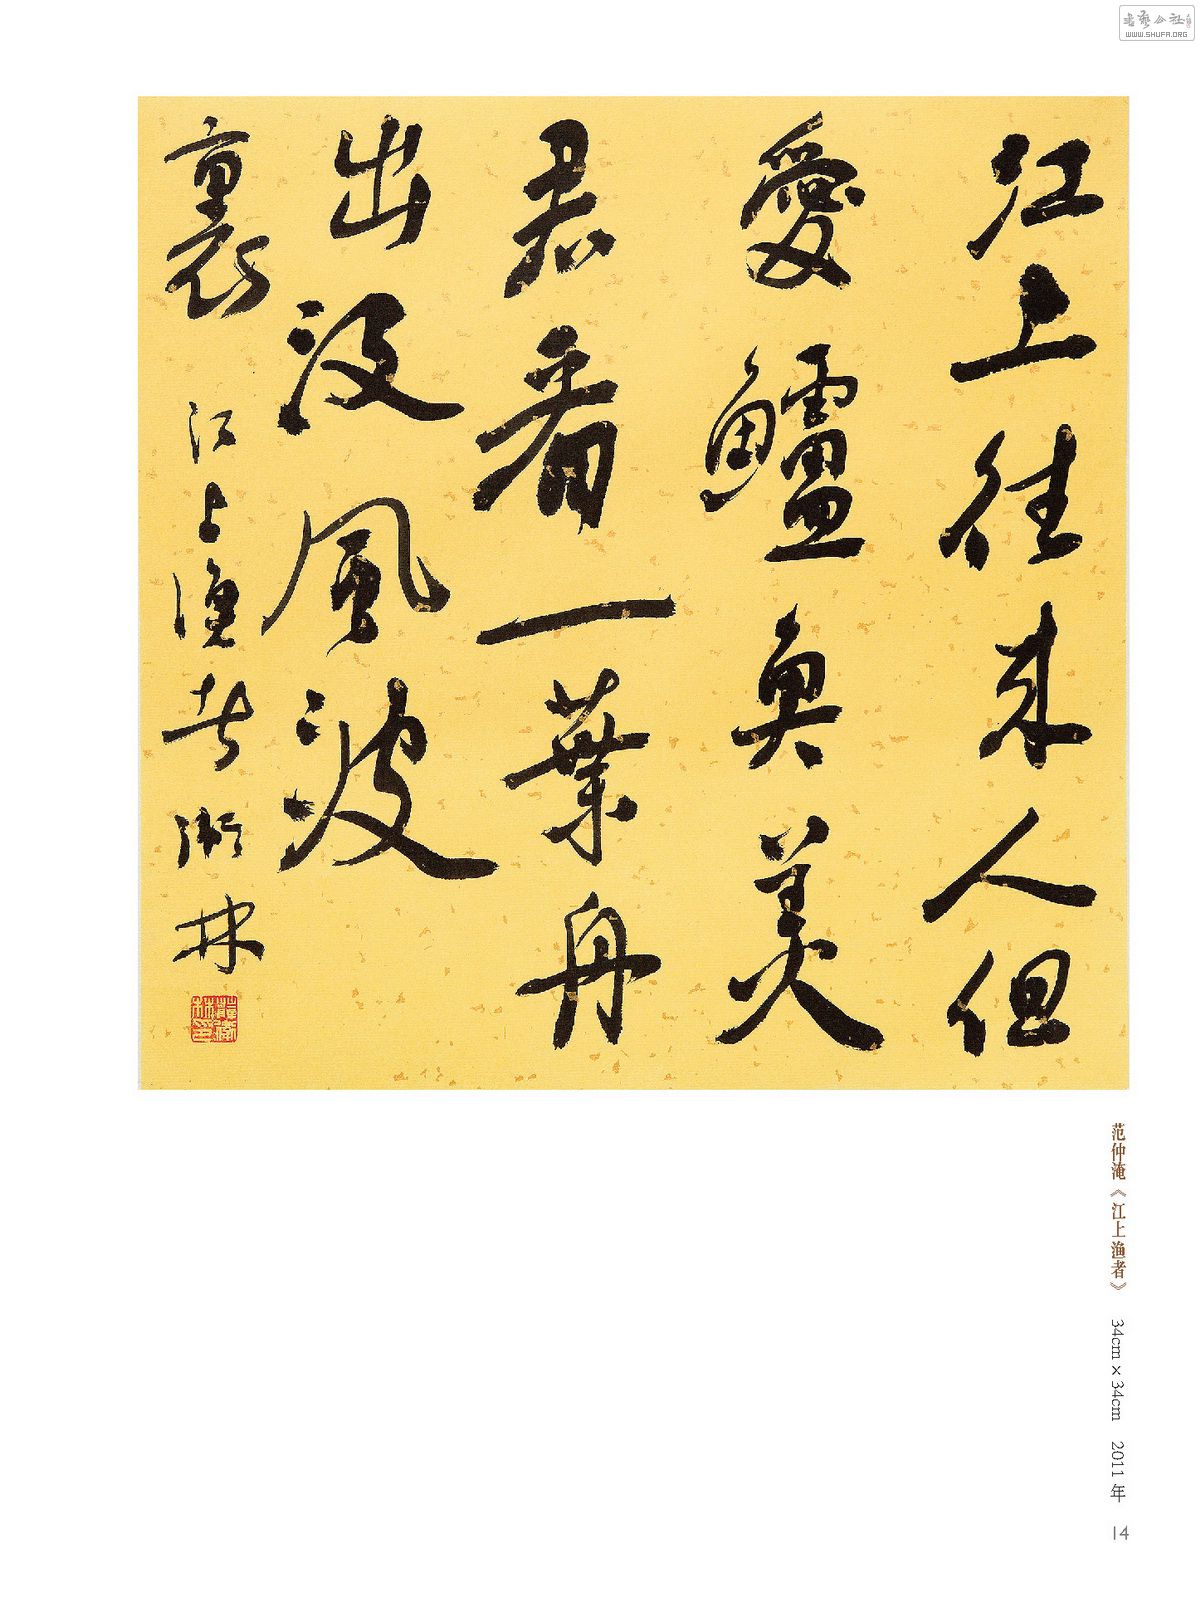 書藝公社
WWW.SHUFA.ORG
江上往来人但
愛鱸魚美
君看一葉舟
出没風波
裏 江上漁者 衛林
范仲淹《江上渔者》 34cm×34cm 2011年
14